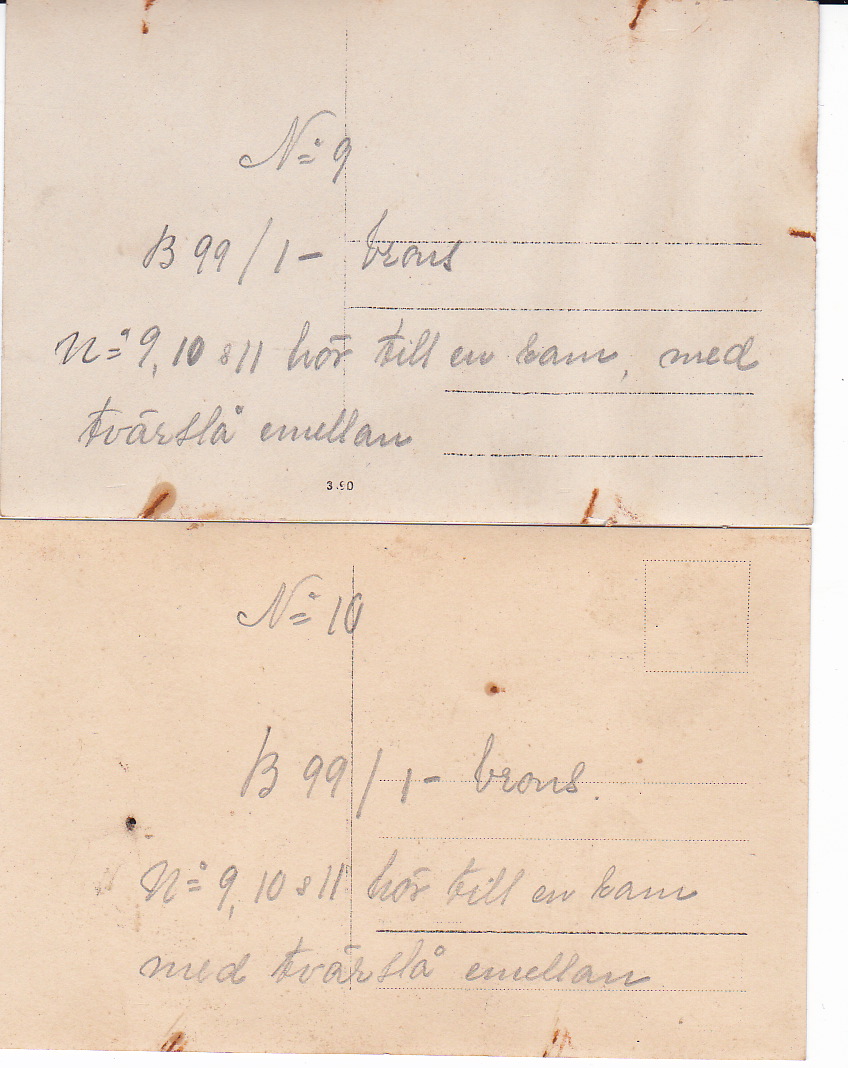 Nº 9
B 99/1- brons
Nº 9, 10 & 11 hör till en kam, med
tvärslå emellan
3.90
Nº 10
B 99/1- brons.
Nº 9, 10 & 11 hör till en kam
med tvärslå emellan